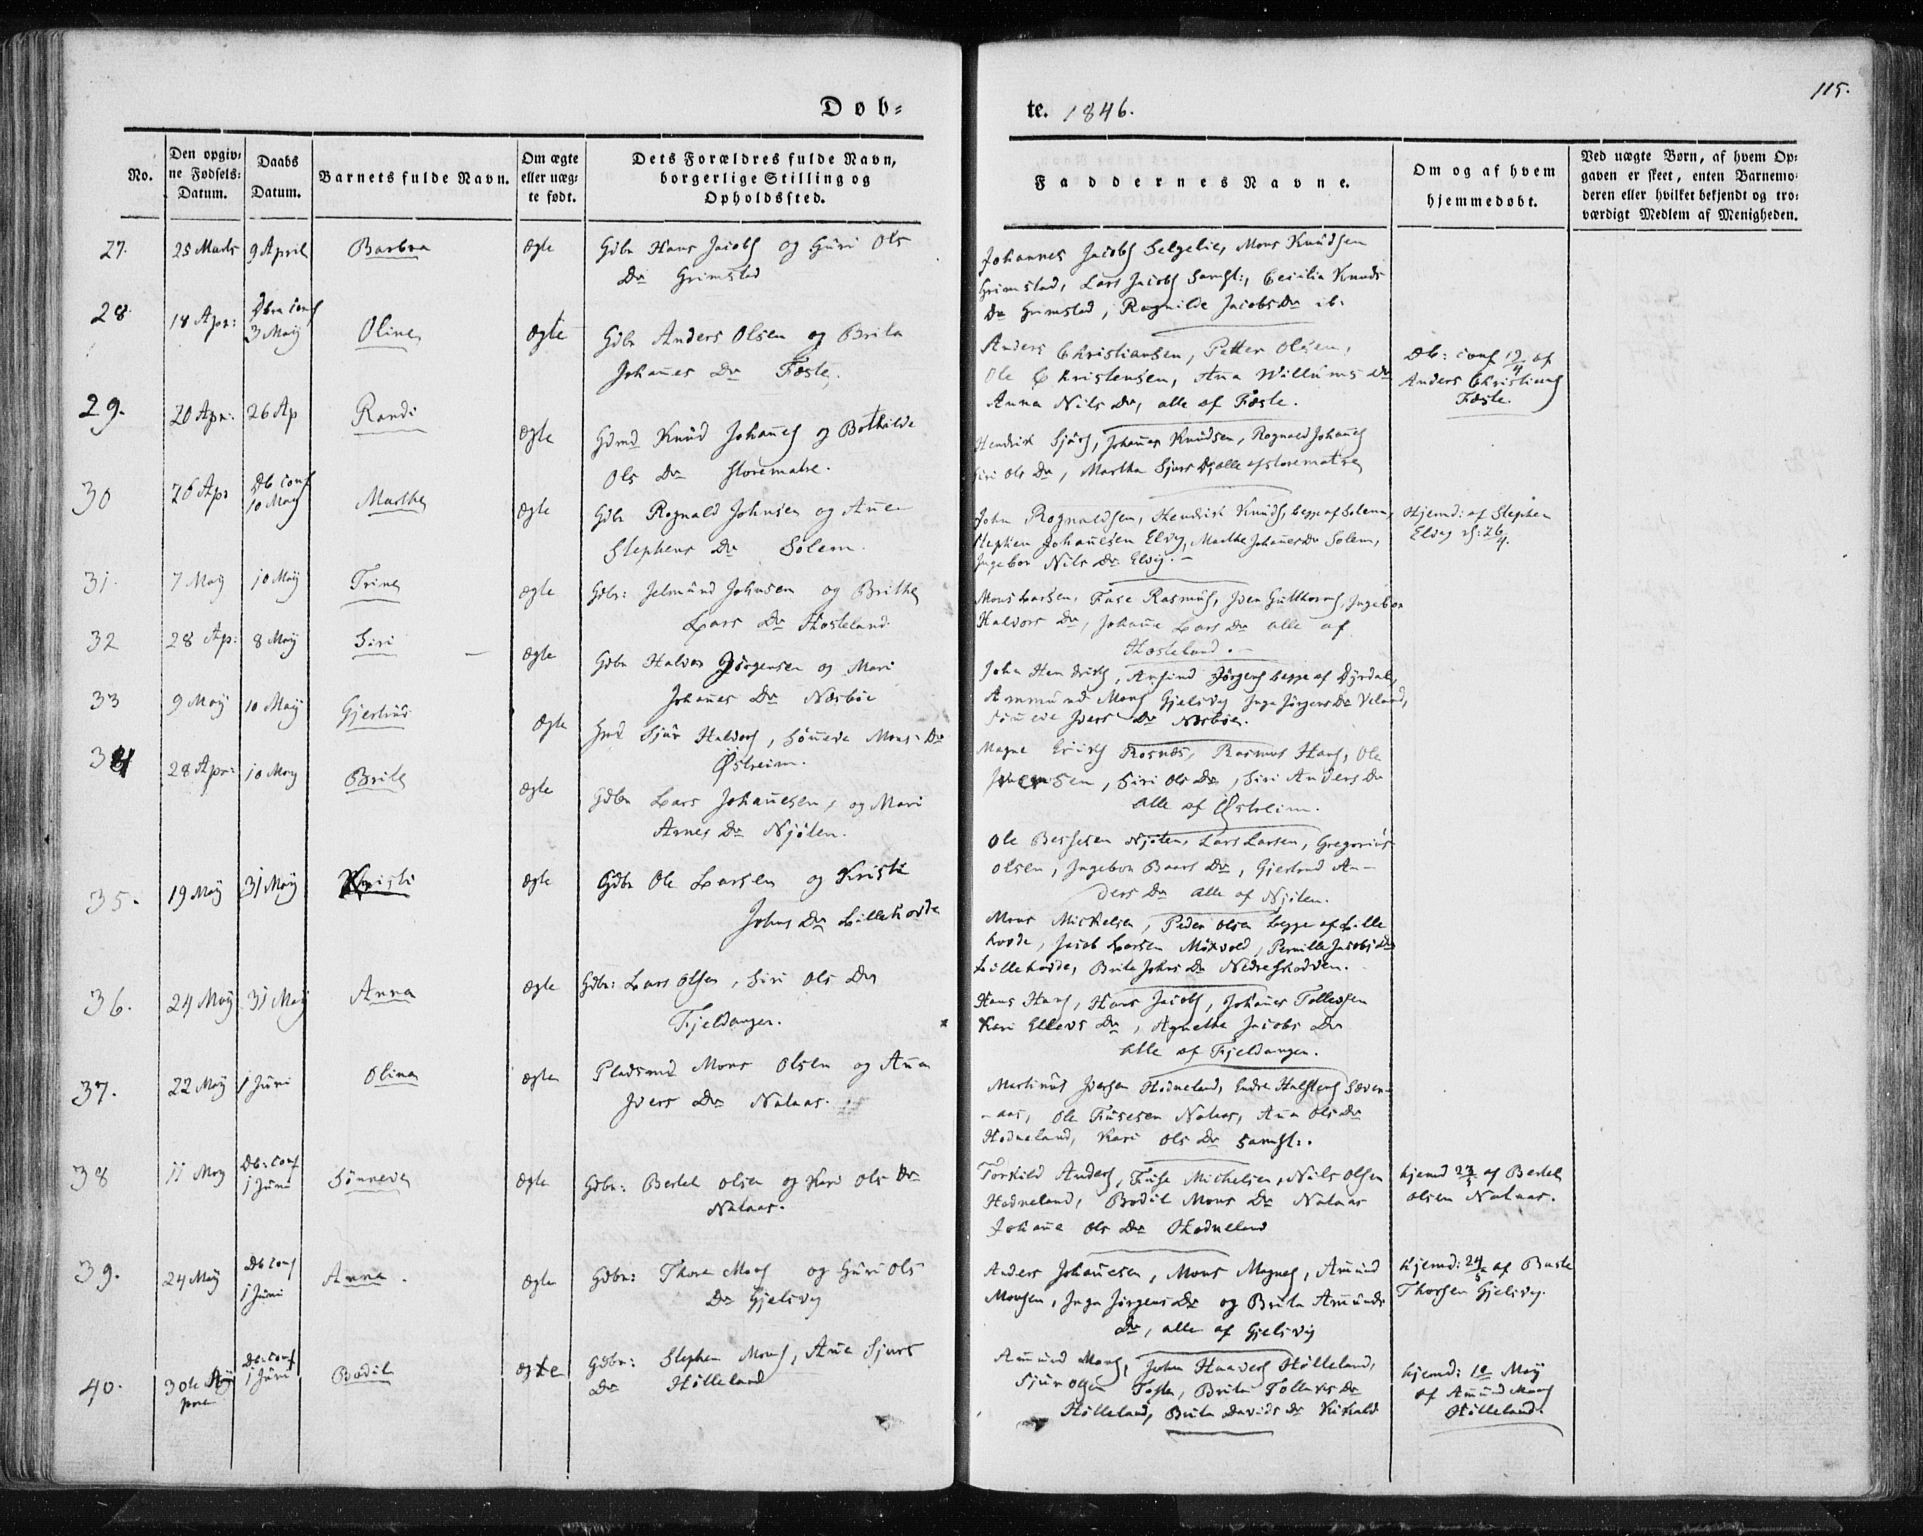 115.
Døb=
te. 1846.
No.
Den opgiv=
ne Fødsels=
Datum.
Daabs
Datum.
Barnets fulde Navn.
Om ægte
eller uæg=
te født.
Dets Forældres fulde Navn,
borgerlige Stilling og
Opholdssted.
Faddernes Navne.
Om og af hvem
hjemmedøbt.
Ved uægte Børn, af hvem Op=
gaven er skeet, enten Barnemo=
deren eller hvilket bekjendt og tro=
værdigt Medlem af Menigheden.
27. 25 Marts 9 April Barbra ægte Gdbr Hans Jacobs og Guri Ols
Dr Grimstad
Johannes Jacobs Selgelie, Mons Knudsen
Grimstad, Lars Jacobs Samst:, Cecilia Knuds
Dr Grimstad, Ragnilde Jacobs Dr ib.
28. 18 Apr: Dbn conf
3 Maij Oline ægte Gdbr Anders Olsen og Brita
Johanes Dr Fæste.
Anders Christiansen, Petter Olsen,
Ole Christensen, Ana Willums Dr
Anna Nils Dr, alle af Fæste.
Db: conf 19/4 af
Anders Christians
Fæste.
29. 20 Apr: 26 Ap Randi ægte Gdmd Knud Johanes og Bothilde
Ols Dr Storematre.
Hendrik Sjurs, Johanes Knudsen, Rognald Johanes
Siri Ols Dr, Martha Sjurs Dr, alle af Storematre
30 26 Apr Db conf
10 May Marthe ægte Gdbr Rognald Johnsen og Anna
Stephens Dr Solem.
John Rognaldsen, Hendrik Knuds, begge af Solem,
Stephen Johanesen Elvig, Marthe Johanes Dr Solem,
Ingebor Nils Dr Elvig.-
Hjemd: af Stephen
Elvig d: 26/4.
31. 7 May 10 Maij Trine ægte Gdbr: Jelmund Johnsen og Brithe
Lars Dr Hosteland.
Mons Larsen, Fase Rasmus, Iver Gutthorms, Ingebor
Halvors Dr, Johane Lars Dr alle af
Hosteland.-
32 28 Ap: 8 Maij Siri ægte Gdbr Halvor Jörgensen og Mari
Johanes Dr Næsböe
John Hendriks, Anfind Jörgens begge af Dyrdal,
Ammund Mons Gjelsvig Inga Jörgens Dr Veland,
Söneve Ivers Dr Næsböe.
33 9 Maij 10 Maij Gjertrud ægte Gmd Sjur Halvors, Söneva Mons Dr
Østreim.
Magne Rosnæs, Rasmus Hans, Ole
Iversen, Siri Ols Dr, Siri Anders Dr
alle af Østreim.
34 28 Apr: 10 May Brite ægte Gdbr Lars Johanesen, og Mari
Arnes Dr Njöten.
Ole Njöten, Lars Larsen, Gregorius
Olsen, Ingebor Baars Dr, Gjertrud An-
ders Dr alle af Njöten.
35. 19 Maij 31 Maij Kristi ægte Gdbr Ole Larsen og Kristi
Johns Dr Lillehovde
Mons Mickelsen, Peder Olsen begge af Lille
hovde, Jacob Larsen Möxvold, Pernille Jacobs Dr
Lillehovde, Brite Johns Dr Nedre Hovden.
36. 24 Maij 31 Maij Anna ægte Gdbr: Lars Olsen, Siri Ols Dr
Fjeldanger.
Hans Hans, Hans Jacobs, Johanes Tollevsen
Kari Ellevs Dr, Agnethe Jacobs Dr
alle af Fjeldanger.
37. 22 Maij 1 Juni Olina ægte Pladsmd Mons Olsen og Ana
Ivers Dr Nataas.
Martinus Iversen Hodneland, Endre Halstens Sæven-
-aas, Ole Fusesen Nataas, Ana Ols Dr
Hodneland, Kari Ols Dr samst:.
38 11 May Db: conf
1 Juni Sönneve ægte Gdbr: Bertel Olsen og Kari Ols Dr
Nataas.
Torkild Anders, Fuse Michelsen, Nils Olsen
Hodneland, Bodil Mons Dr Nataas
Johane Ols Dr Hodneland
hjemd 23/5 af Bertel
Olsen Nataas.
39. 24 Maij Db conf
1 Juni Anna. ægte Gdbr: Thore Mons og Guri Ols
Dr Gjelsvig
Anders Johanesen, Mons Magnes, Amund
Monsen, Inga Jörgens Dr og Brita Amunds
Dr, alle af Gjelsvig
hjemd: 24/5 af
Thorsen Gjelsvig.
40. 30te
Db: conf
1 Juni Bodil ægte Gdbr: Stephen Mons, Ana Sjurs
Dr Hölleland
Amund Mons, John Haavers Hölleland,
Sjur Olsen Foste, Brita Tollevs Dr
Hölleland, Brita Davids Dr Kirkald
hjemd: 10 Maij
af Amund Mons
Hölleland.